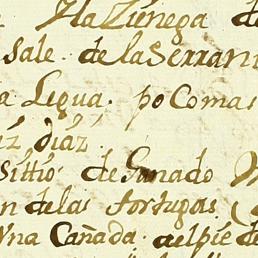 Yla Zienega de
sale. de la Serrani
a Legua. po Comas
iz diaz
Sittio de Ganado
n de las tortugas
Vna Cañada. del pie de